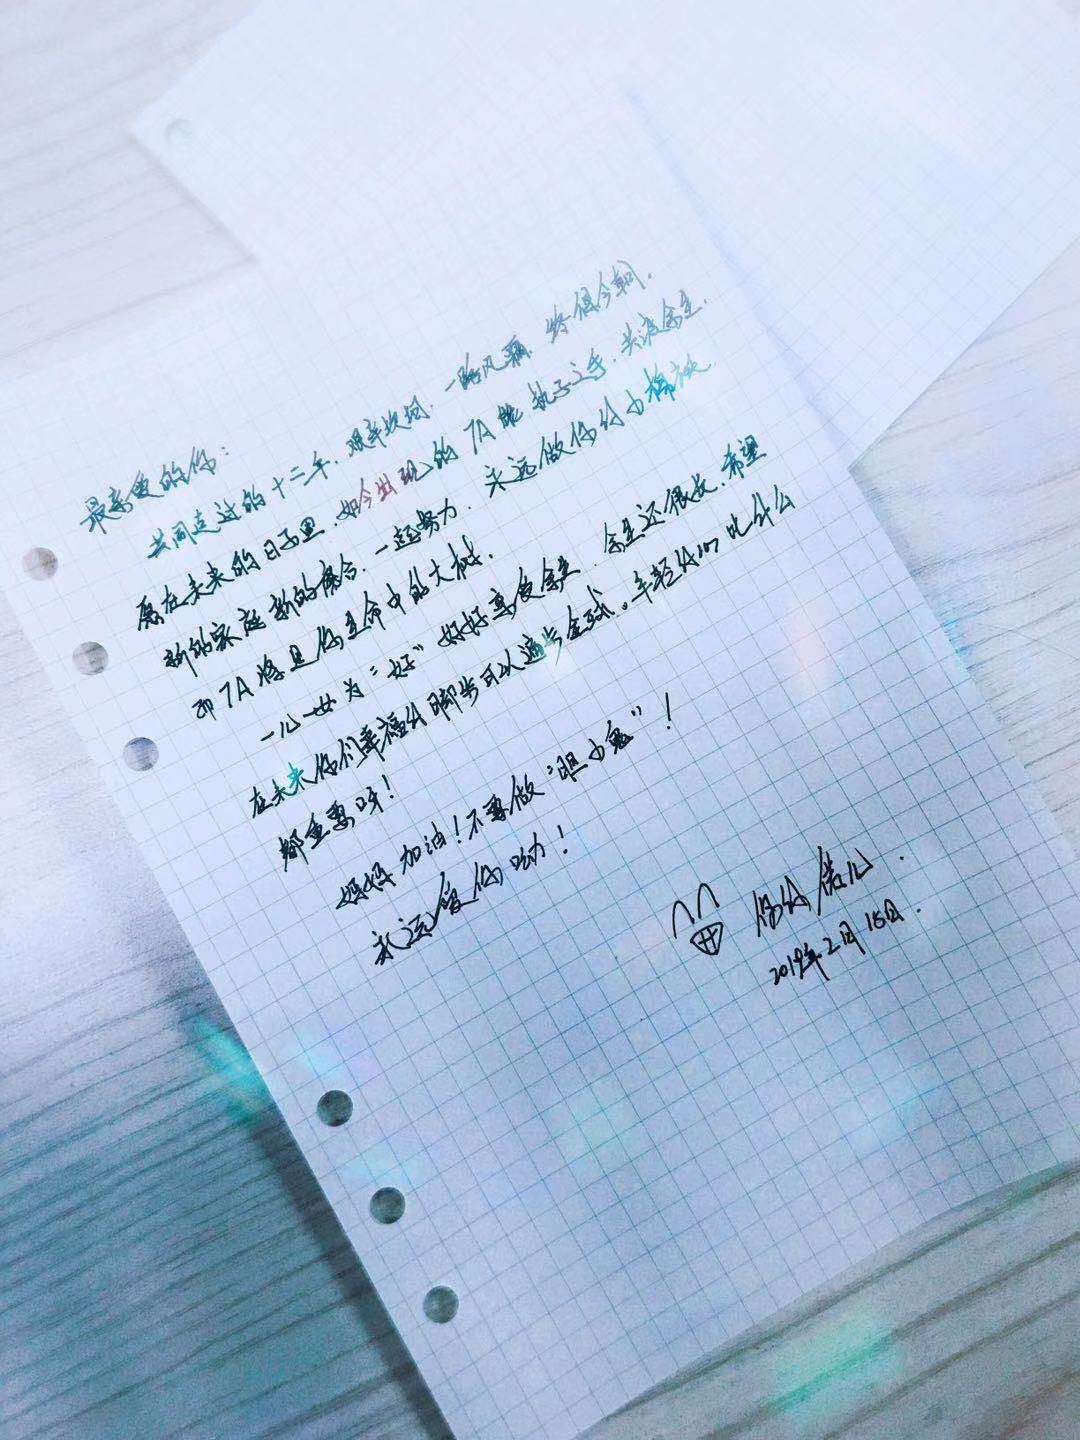 最亲爱的你：
共同走过的十二年，艰辛坎坷，一路风雨，终俱今朝，
愿在未来的日子里，如今出现的TA能执子之手，共渡余生，
新的家庭新的集合，一起努力，永远做你的小棉袄
而TA将是你生命中的大树，
一儿一女为“好”好好享受余生，余生还很长，希望
在未来你们幸福的脚步可以遍步全球。年轻的心比什么
都重要呀！
妈妈加油！不要做“胆小鬼”！
永远爱你呦！
你的 儿．
2019年2月15日．